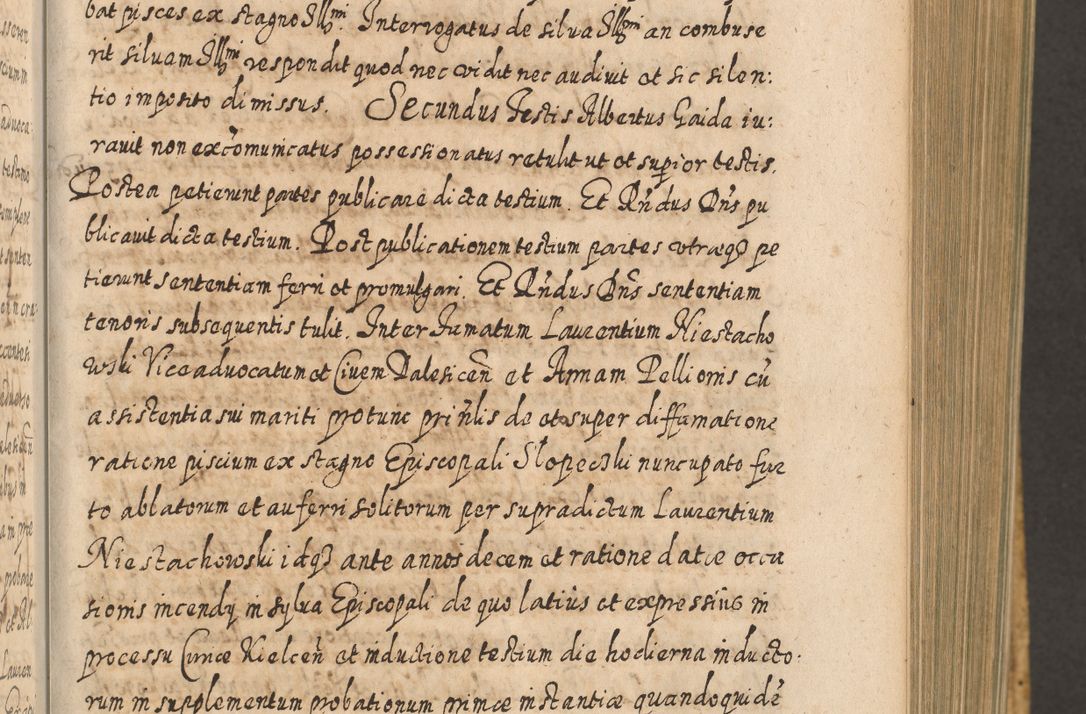 bat pisces ex stagno Illmi. Interrogatus de silua Illmi an combuse
rit siluam Illmi respondit quod nec vidit nec audiuit et sic silen:
tio imposito dimissus. Secundus Testis Albertus Gaida iu:
rauit non excõmunicatus possessionatus retulit ut et supior testis.
Postea petierunt partes publicare dicta testium. Et Rñdus Dñs pu
blicauit dicta testium. Post publicationem testium partes vtraqꝫ pe
tierunt sententiam ferri et promulgari. Et Rñdus Dñs sententiam
tenoris subsequentis tulit. Inter Famatum Laurentium Niestacho
wski Viceaduocatum et Ciuem Dalesicen̄ et Annam Pellionis cū
assistentia sui mariti pro tunc prin̄lis de et super diffamatione
ratione piscium ex stagno Episcopali Slopeczki nuncupato fur
to ablatorum et auferri solitorum per supradictum Laurentium
Niestachowski idqꝫ ante annos decem et ratione datæ occa
sionis incendy in sylua Episcopali de quo latiùs et expressiùs in
processu Curiæ Kielcen̄ et inductione testium die hodierna inducto
rum in supplementum probationum primæ instantiæ quandoquidē